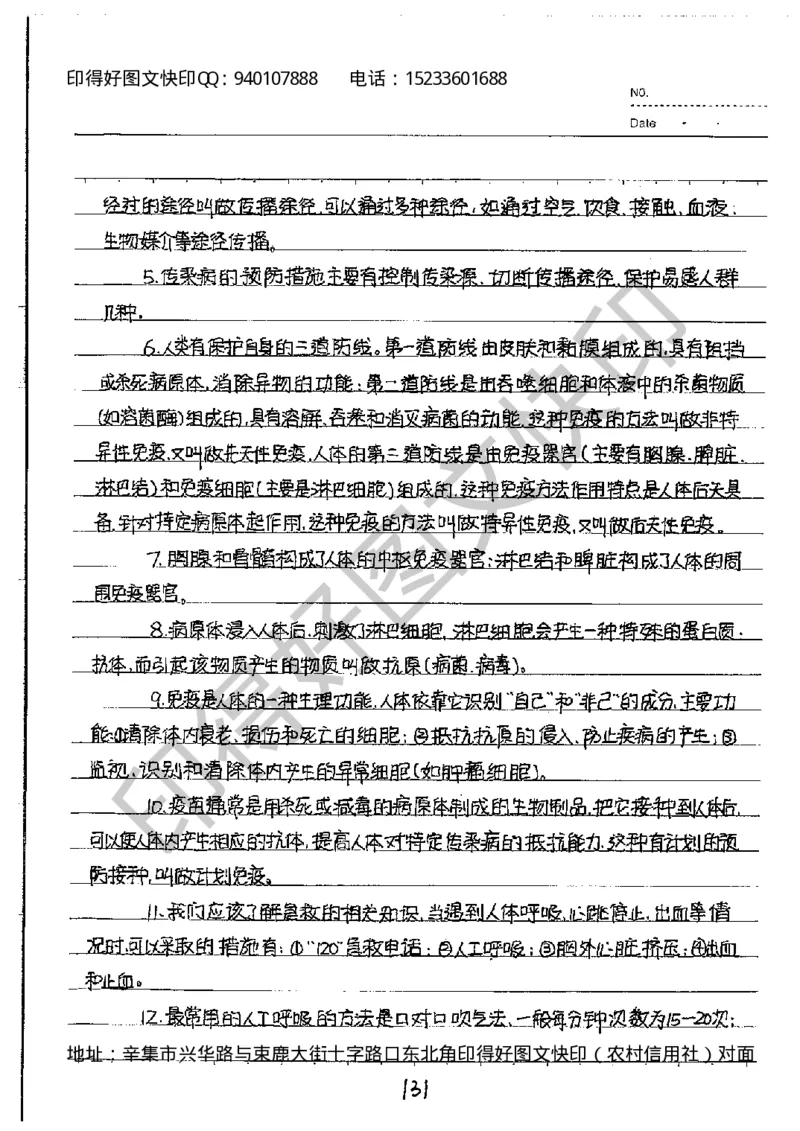 印得好图文快印QQ：940107888 电话：15233601688
NO.
Date
经过的途径叫做传播途径,可以通过多种途径,如通过空气、饮食、接触、血液;
生物媒介等途径传播。
5.传染病的预防措施主要有控制传染源、切断传播途径、保护易感人群
几种。
6.人类有保护自身的三道防线。第一道防线由皮肤和黏膜组成的,具有阻挡
或杀死病原体,消除异物的功能;第二道防线是由吞噬细胞和体液中的杀菌物质
(如溶菌酶)组成的,具有溶解、吞噬和消灭病菌的功能,这种免疫的方法叫做非特
异性免疫,又叫做先天性免疫,人体的第三道防线是由免疫器官(主要有胸腺、脾脏、
淋巴结)和免疫细胞(主要是淋巴细胞)组成的,这种免疫方法作用特点是人体后天具
备,针对特定病原体起作用,这种免疫的方法叫做特异性免疫,又叫做后天性免疫。
7.胸腺和骨髓构成了人体的中枢免疫器官;淋巴结和脾脏构成了人体的周
围免疫器官。
8.病原体浸入人体后,刺激了淋巴细胞,淋巴细胞会产生一种特殊的蛋白质.
抗体,而引起该物质产生的物质叫做抗原(病菌.病毒)。
9.免疫是人体的一种生理功能,人体依靠它识别"自己"和"非己"的成分,主要功
能:①清除体内衰老、损伤和死亡的细胞;②抵抗抗原的侵入、防止疾病的产生;③
监视、识别和清除体内产生的异常细胞(如肿瘤细胞)。
10.疫苗通常是用杀死或减毒的病原体制成的生物制品,把它接种到人体后,
可以使人体内产生相应的抗体,提高人体对特定传染病的抵抗能力,这种有计划的预
防接种,叫做计划免疫。
11.我们应该了解急救的相关知识,当遇到人体呼吸,心跳停止,出血等情
况时,可以采取的措施有:①"120"急救电话;②人工呼吸;③胸外心脏挤压;④出血
和止血。
12.最常用的人工呼吸的方法是口对口吹气法、一般每分钟次数为15—20次;
地址：辛集市兴华路与束鹿大街十字路口东北角印得好图文快印（农村信用社）对面
131
印得好图文快印